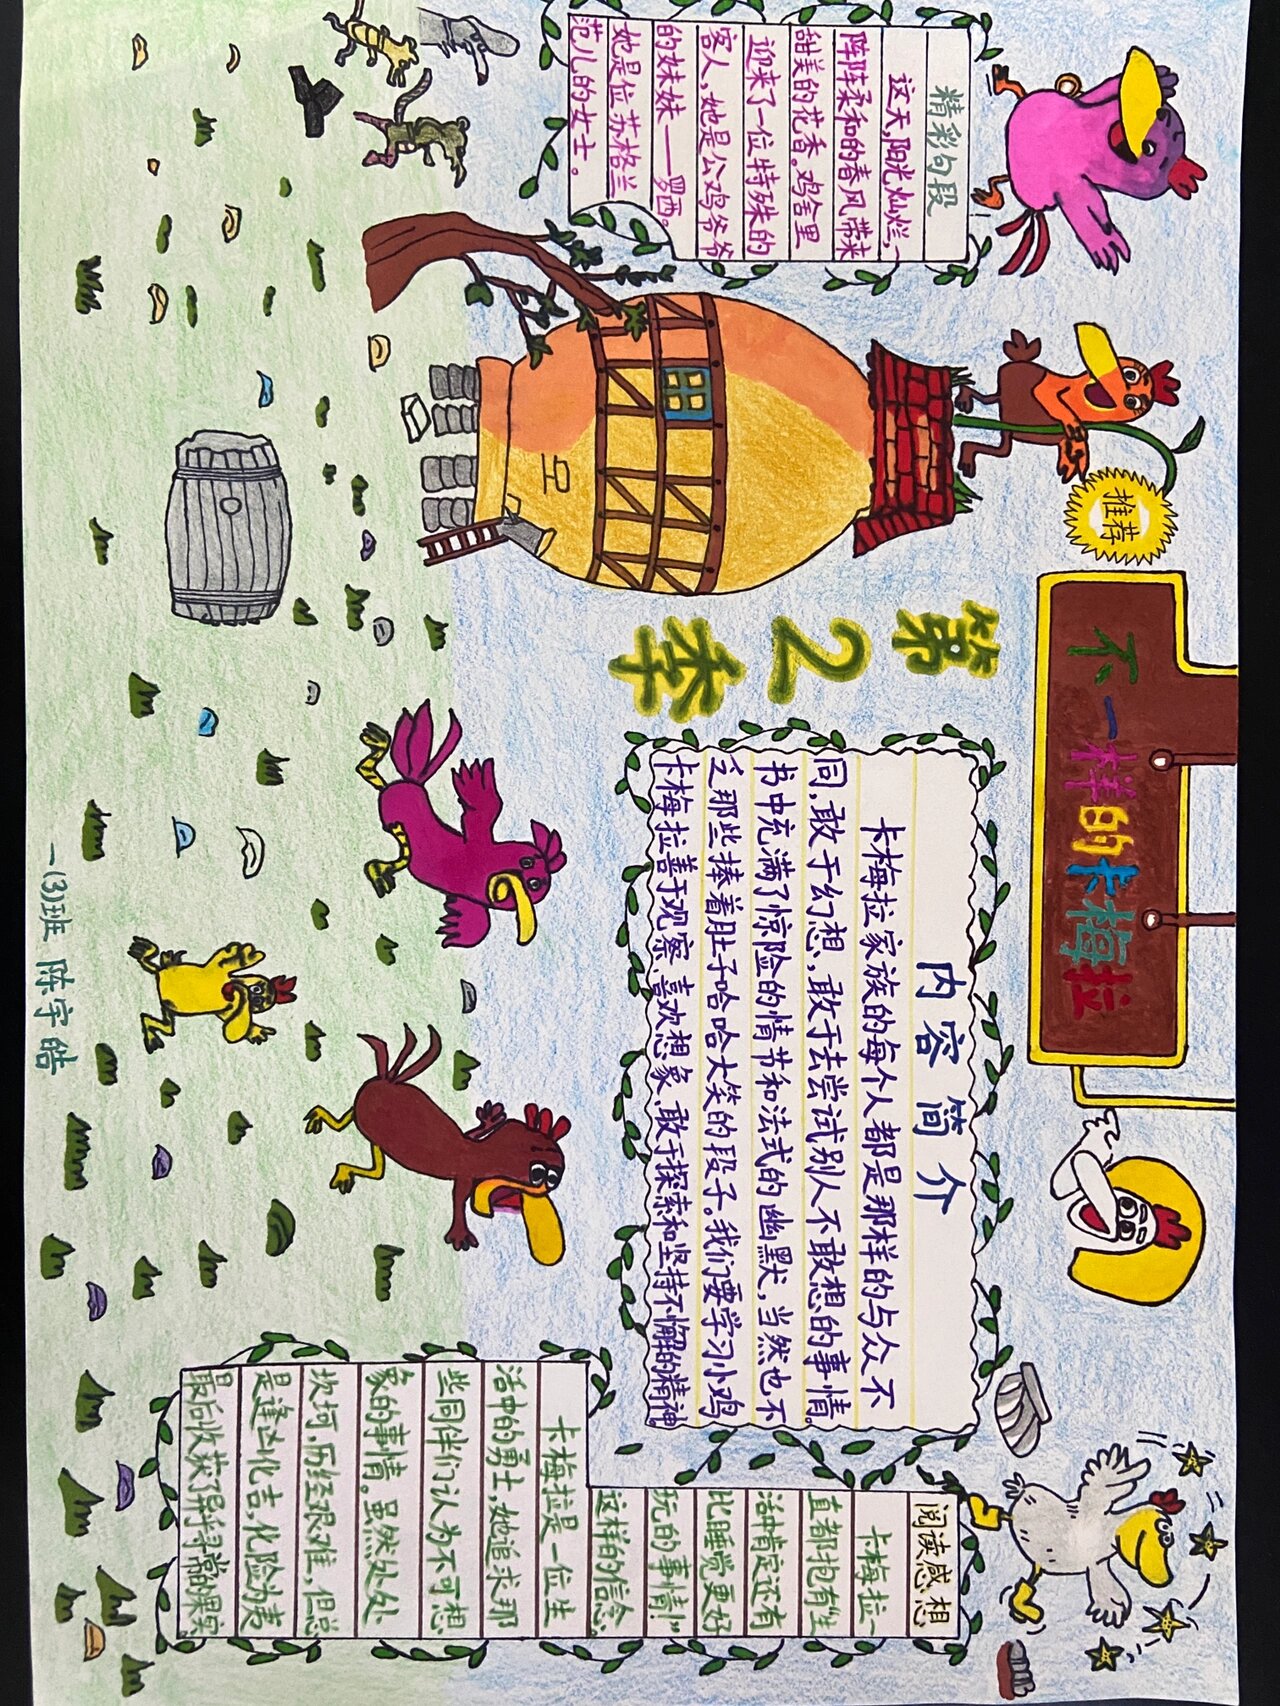 推荐
不一样的卡梅拉
第2季
精彩句段
这天,阳光灿烂,一
阵阵柔和的春风带来
甜美的花香。鸡舍里
迎来了一位特殊的
客人,她是公鸡爷爷
的妹妹——罗西。
她是位苏格兰
范儿的女士。
内容简介
卡梅拉家族的每个人都是那样的与众不
同,敢于幻想,敢于去尝试别人不敢想的事情。
书中充满了惊险的情节和法式的幽默,当然也不
乏那些捧着肚子哈哈大笑的段子。我们要学习小鸡
卡梅拉善于观察、喜欢想象、敢于探索和坚持不懈的精神。
阅读感想
卡梅拉一
直都抱有"生
活中肯定还有
比睡觉更好
玩的事情!"
这样的信念。
卡梅拉是一位生
活中的勇士,她追求那
些同伴们认为不可想
象的事情。虽然处处
坎坷,历经艰难,但总
是逢凶化吉,化险为夷
最后收获了异乎寻常的果实
一(3)班 陈宇皓